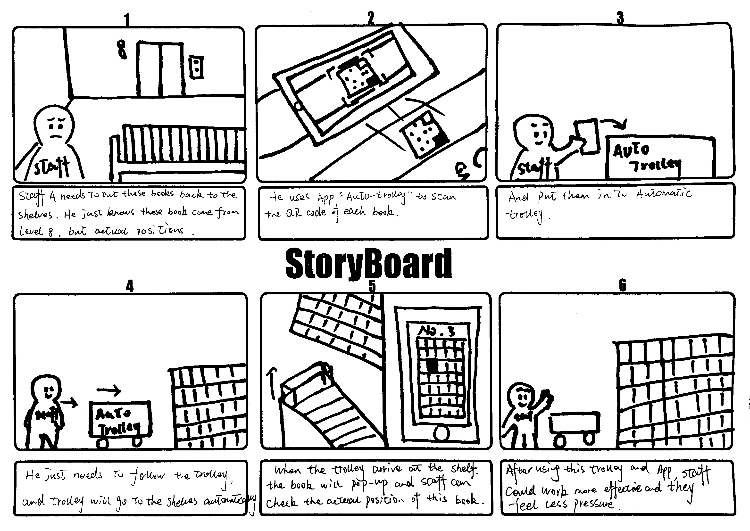 1
2
3
8
Staff
Staff
Auto
Trolley
Staff A needs to put these books back to the
shelves. He just knows these book come from
Level 8, but actual positions.
He uses App "Auto-trolley" to scan
the QR code of each book.
And put them in to Automatic
trolley.
StoryBoard
4
5
6
Staff
Auto
Trolley
No. 3
He just needs to follow the trolley,
and trolley will go to the shelves automatically
When the trolley arrive at the shelf.
the book will pop-up and staff can
check the actual position of this book.
After using this trolley and App, staff
could work more effective and they
feel less pressure.